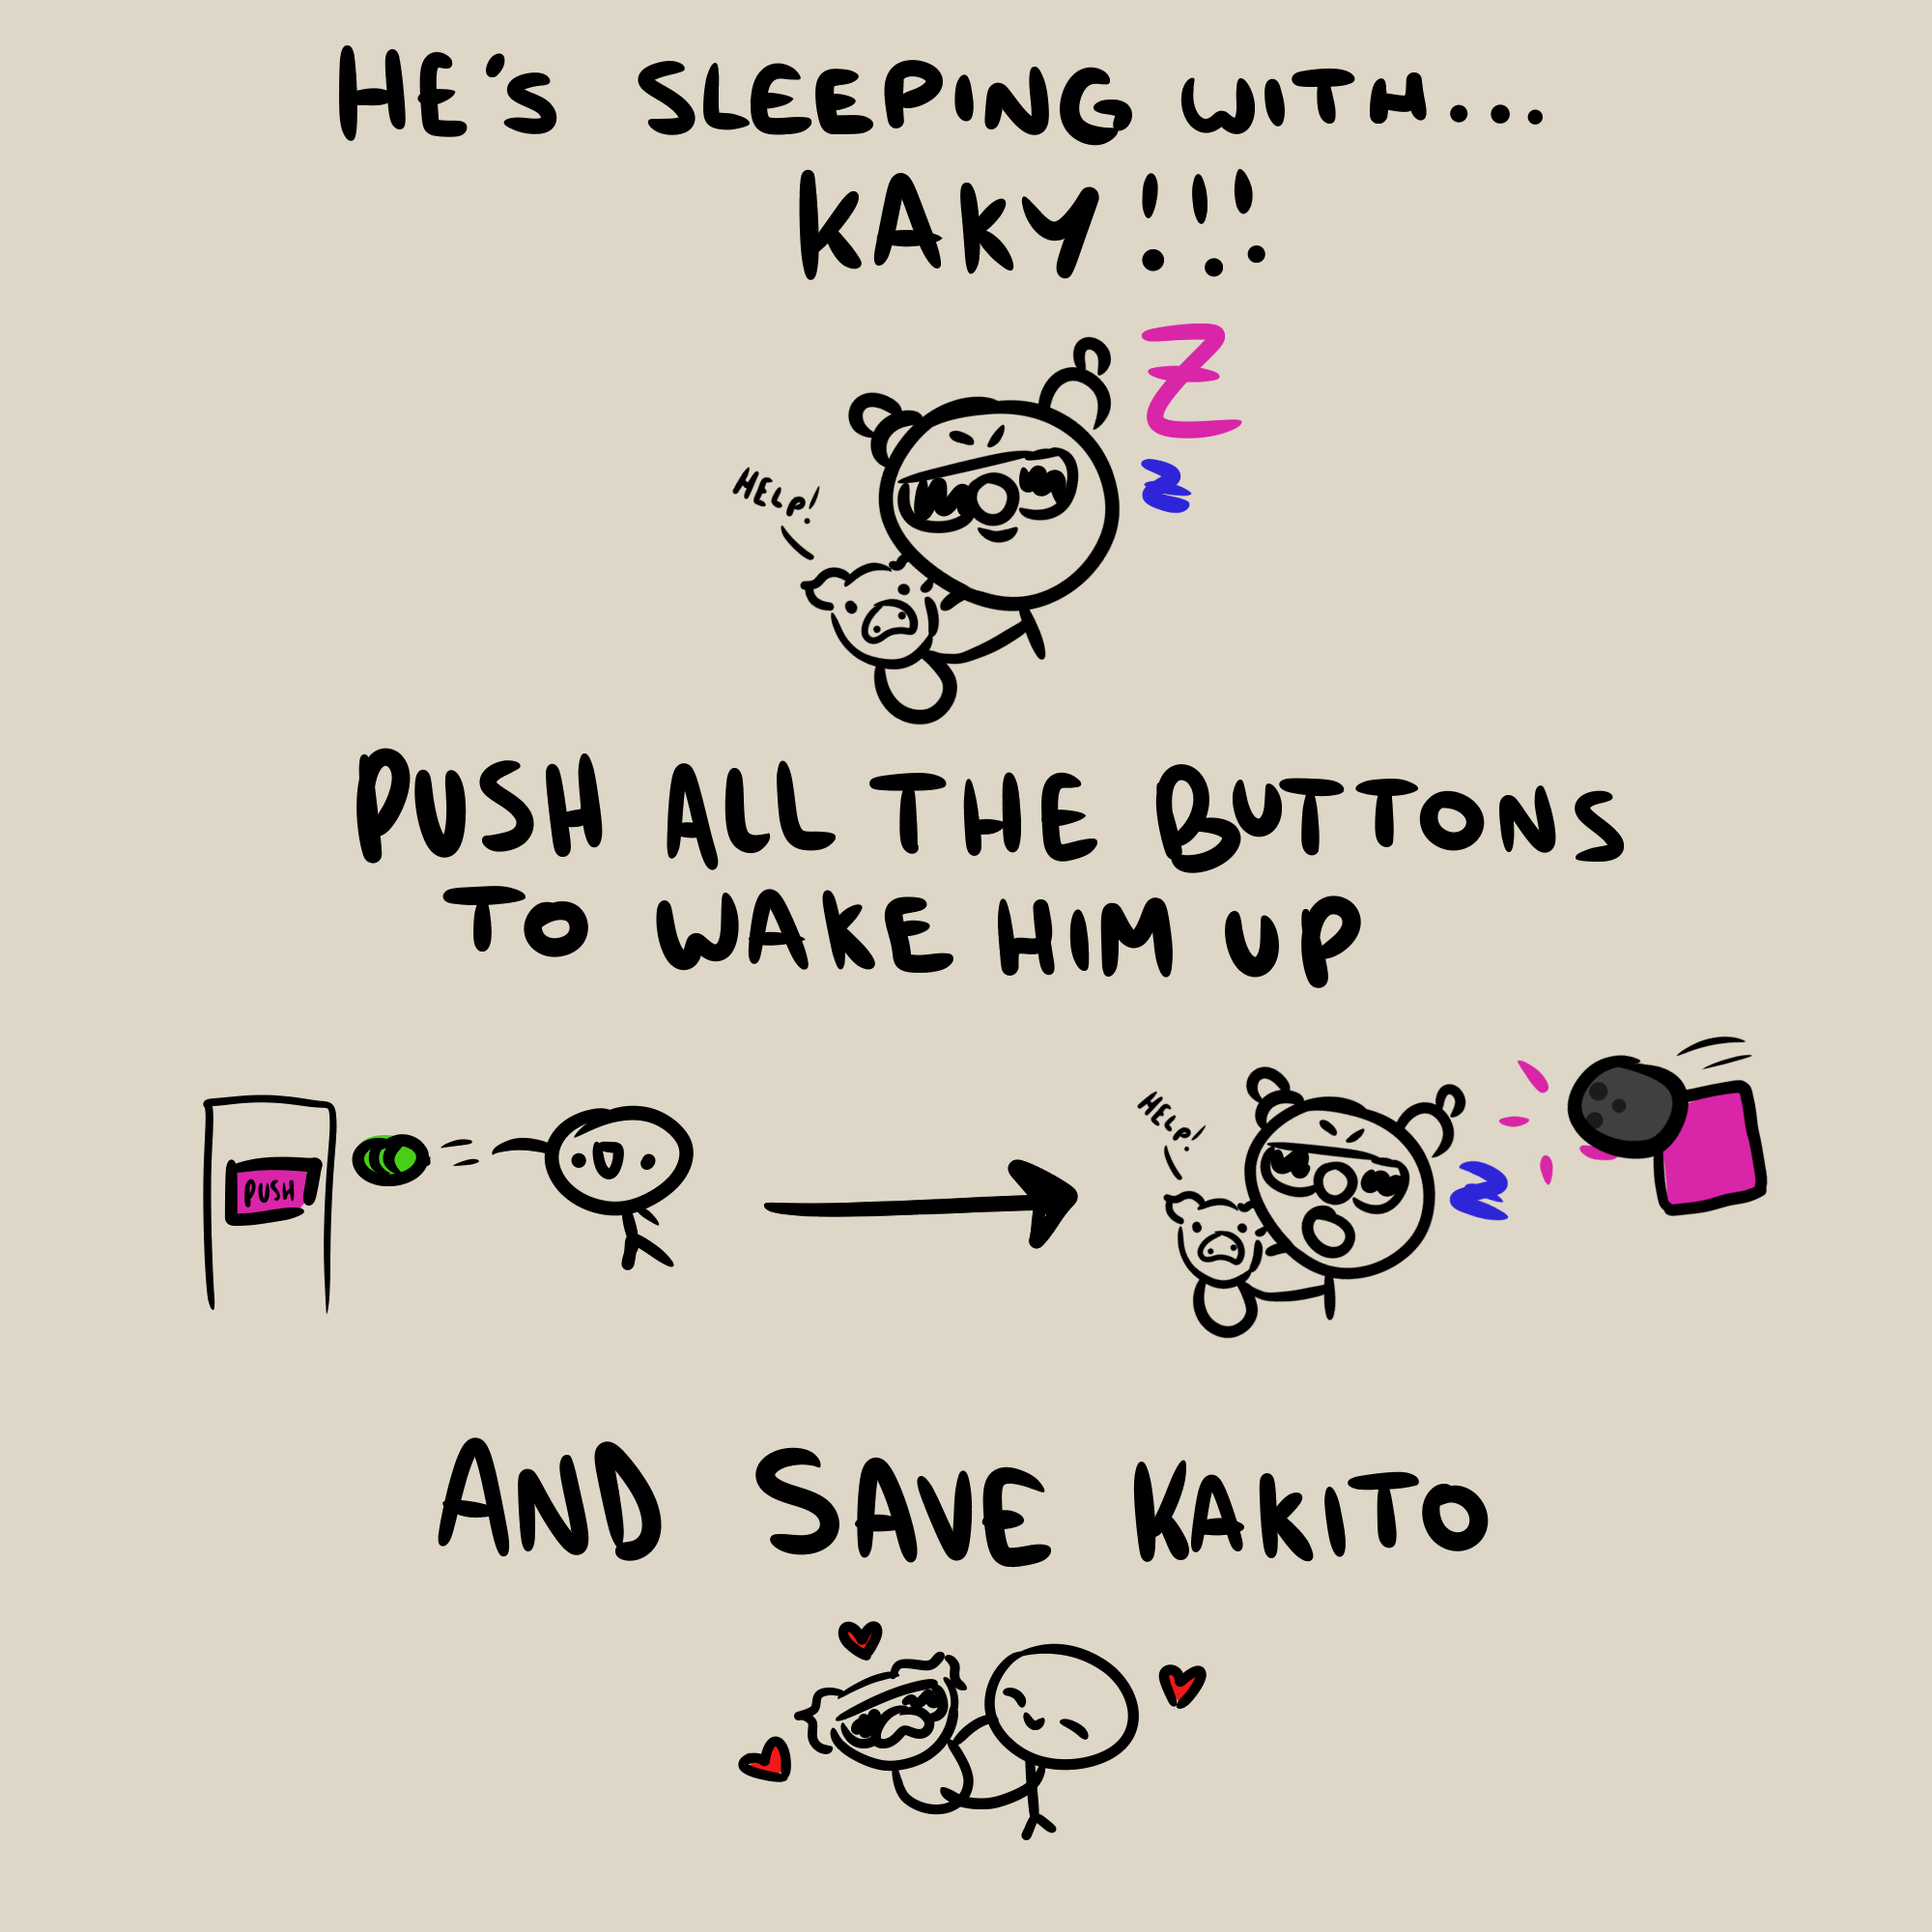 HE'S SLEEPING WITH...
KAKY!!!
Z
HELP!
Z
PUSH ALL THE BUTTONS
TO WAKE HIM UP
HELP!
PUSH
Z
AND SAVE KAKITO